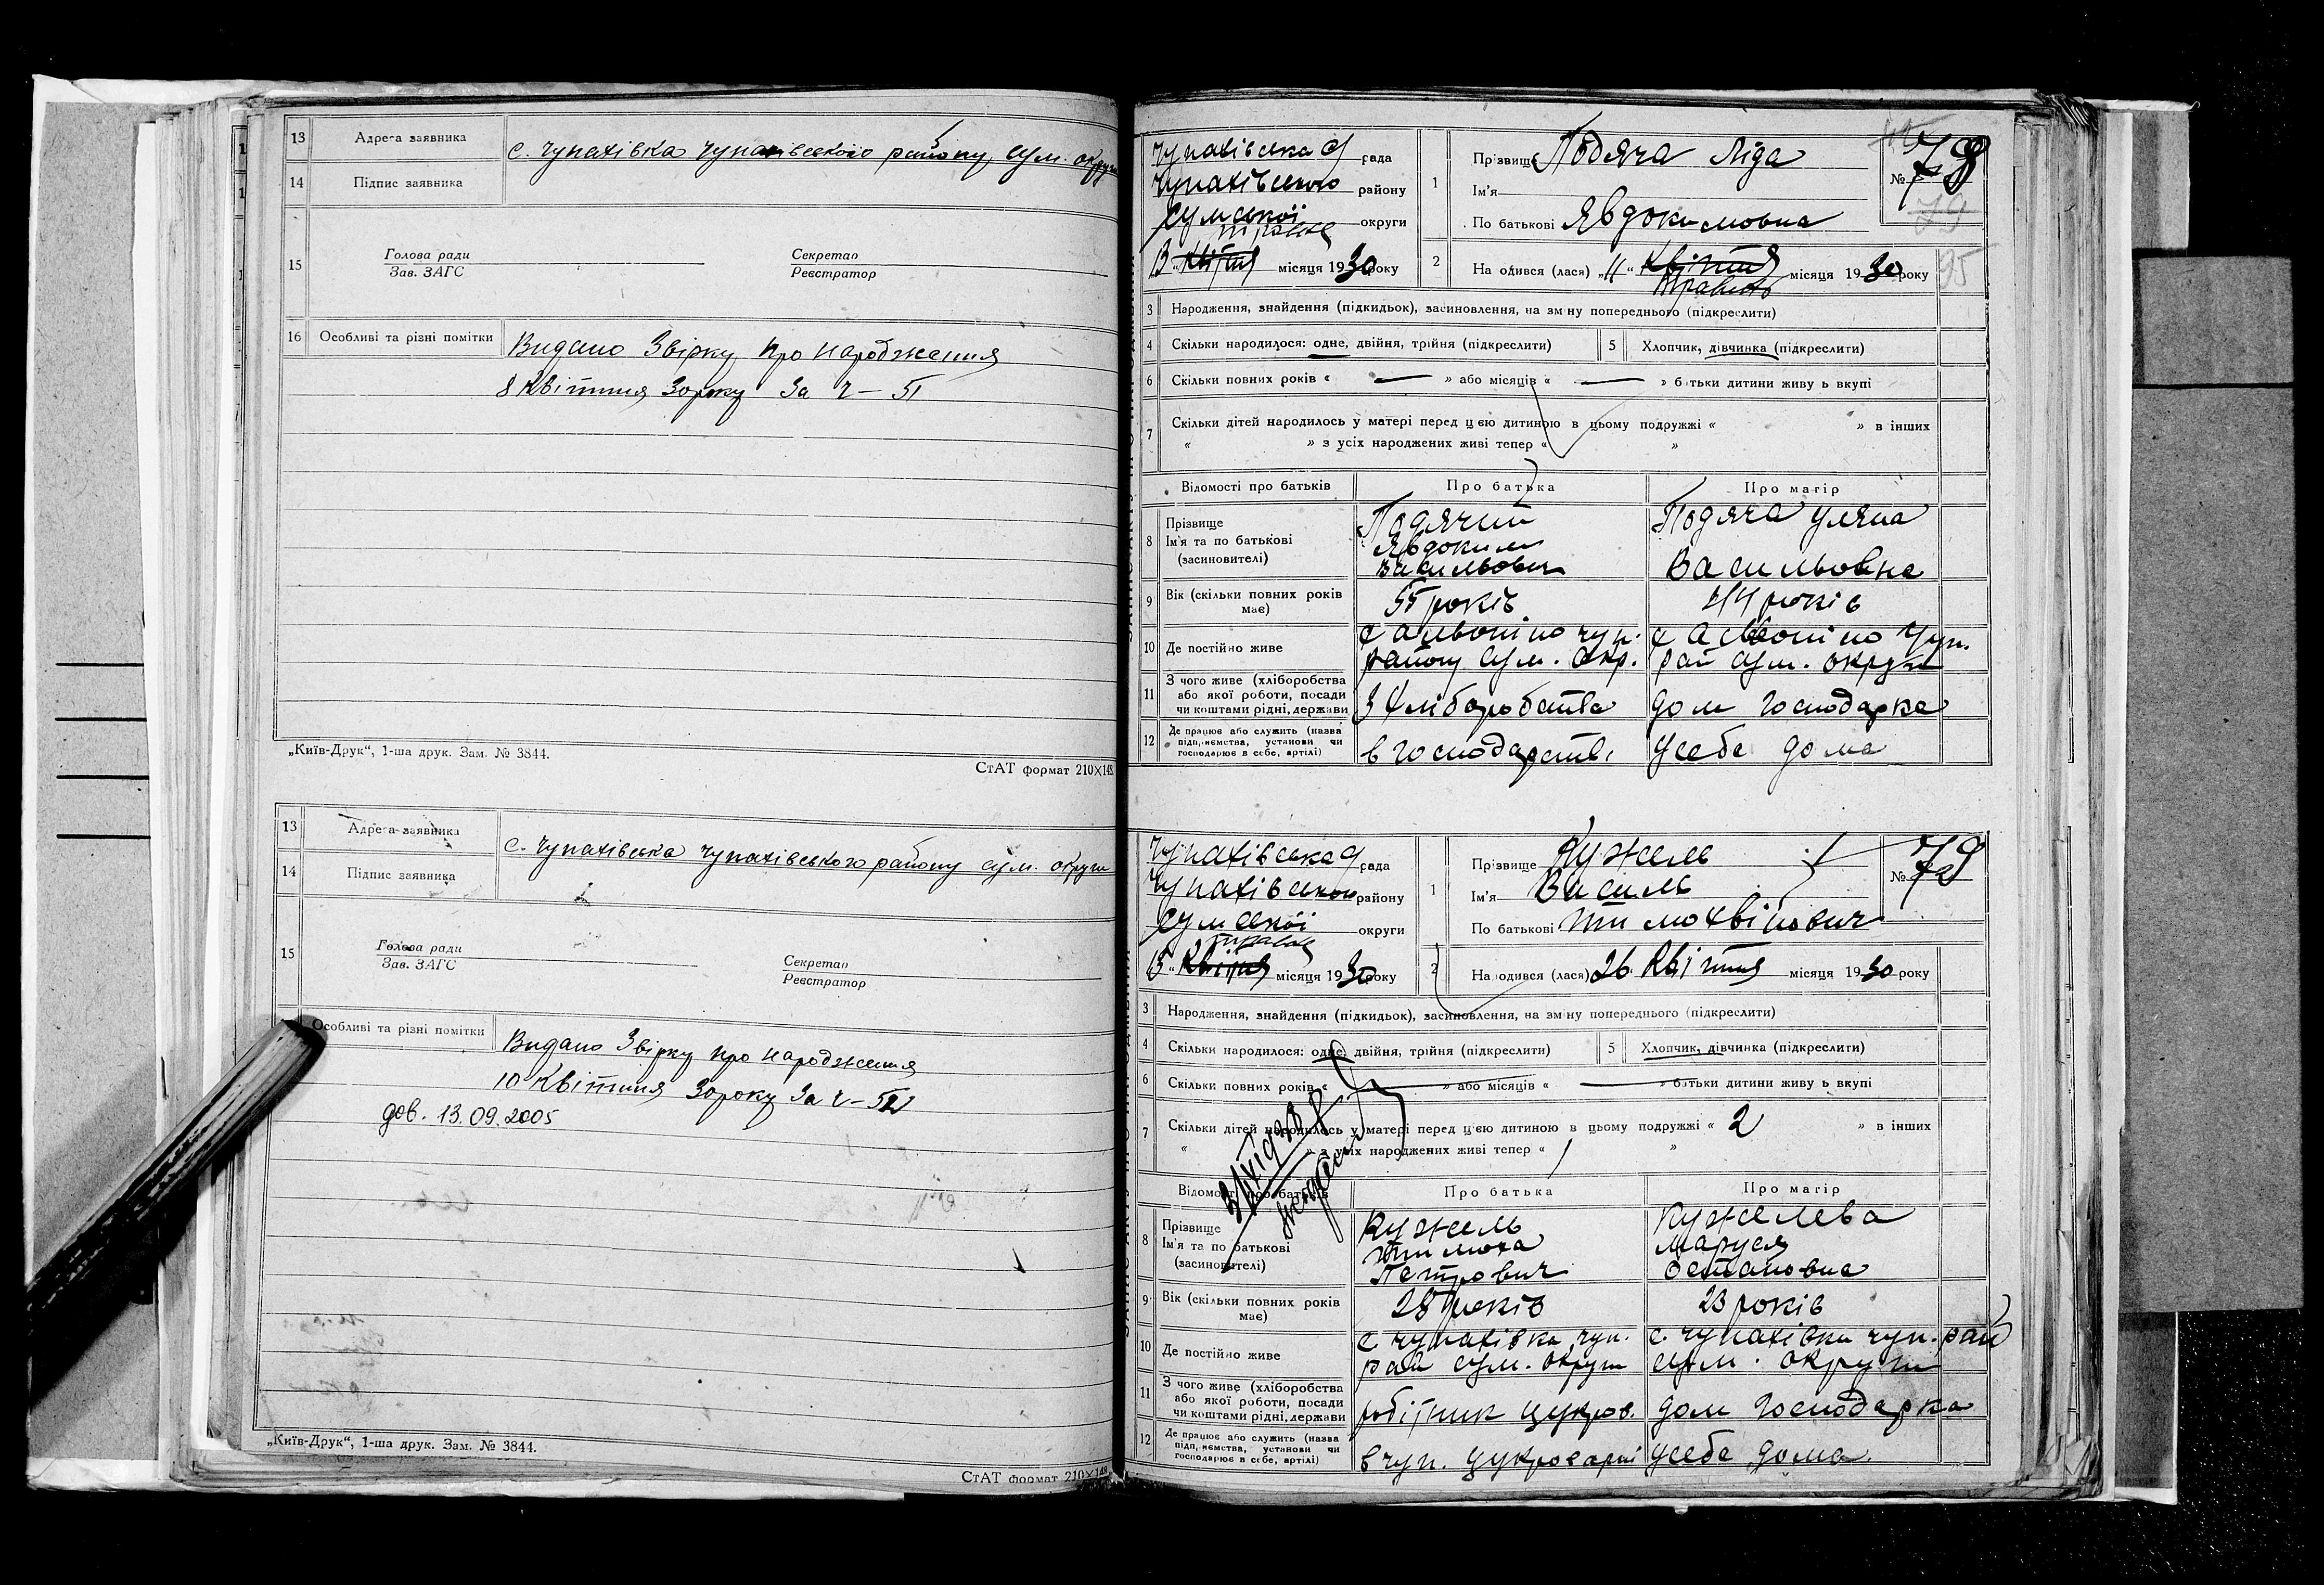 13 Адреса заявника с. Чупахівка Чупахівського району, Сум. округи
14 Підпис заявника
15 Голова ради Секретар
Зав. ЗАГС Реєстратор
16 Особливі та різні помітки Видано Звірку про народження
8 Квіттня 30 року За Ч – 51
„Київ-Друк“, 1-ша друк. Зам. № 3844.
СтАТ формат 210×148
13 Адреса заявника с. Чупахівська Чупахівського району сум. округи
14 Підпис заявника
15 Голова ради Секретар
Зав. ЗАГС Реєстратор
Особливі та різні помітки Видано Звірку про народження
10 Квіттня 30 року За Ч – 52
дов. 13.09.2005
„Київ-Друк“, 1-ша друк. Зам. № 3844.
СтАТ формат 210×148
Чупахівська рада
Чупахівського району
Сумської округи
травня
13 “ Квітня місяця 1930 року
1 Прізвище Подяча Ліда № 78
Ім'я 79
По батькові Явдокимовна
2 На одився (лася) „11“ Квітня місяця 1930 року 95
Травня
3 Народження, знайдення (підкидьок), засиновлення, на зміну попереднього (підкреслити)
4 Скільки народилося: одне, двійня, трійня (підкреслити) 5 Хлопчик, дівчинка (підкреслити)
6 Скільки повних років « — » або місяців « — » батьки дитини живу ь вкупі
7 Скільки дітей народилось у матері перед цією дитиною в цьому подружжі « » в інших
« » з усіх народжених живі тепер « »
Відомості про батьків Про батька Про матір
8 Прізвище Ім'я та по батькові (засиновителі) Подячий Явдоким Васильович Подяча Уляна Васильовна
9 Вік (скільки повних років має) 55 років 44 років
10 Де постійно живе с Альоніно чуп. району Сум. окр. с Альоніно Чуп. рай сум. округи
11 З чого живе (хліборобства або якої роботи, посади чи коштами рідні, держави З Хліборобства дом господарка
12 Де працює або служить (назва підприємства, установи чи господарює в себе, артілі) в господарстві усебе дома
Чупахівська рада
Чупахівськой району
Сумської округи
травня
13 “ Квітня місяця 1930 року
1 Прізвище Кужель № 79
Ім'я Василь
По батькові Тимохвійович
2 На одився (лася) 26 Квіття місяця 1930 року
3 Народження, знайдення (підкидьок), засиновлення, на зміну попереднього (підкреслити)
4 Скільки народилося: одне, двійня, трійня (підкреслити) 5 Хлопчик, дівчинка (підкреслити)
6 Скільки повних років « — » або місяців « — » батьки дитини живу ь вкупі
7 Скільки дітей народилось у матері перед цією дитиною в цьому подружжі « 2 » в інших
« » з усіх народжених живі тепер « 1 »
Відомості про батьків Про батька Про матір
8 Прізвище Ім'я та по батькові (засиновителі) Кужель Тимоха Петрович Кужелева Маруся Остаповна
9 Вік (скільки повних років має) 28 років 23 років
10 Де постійно живе с Чупахівка, чуп. рай сум. округи с. Чупахівки чуп. рай сум. округи
11 З чого живе (хліборобства або якої роботи, посади чи коштами рідні, держави робітник цукров. дом господарка
12 Де працює або служить (назва підприємства, установи чи господарює в себе, артілі) в чуп. цукроварні усебе дома.